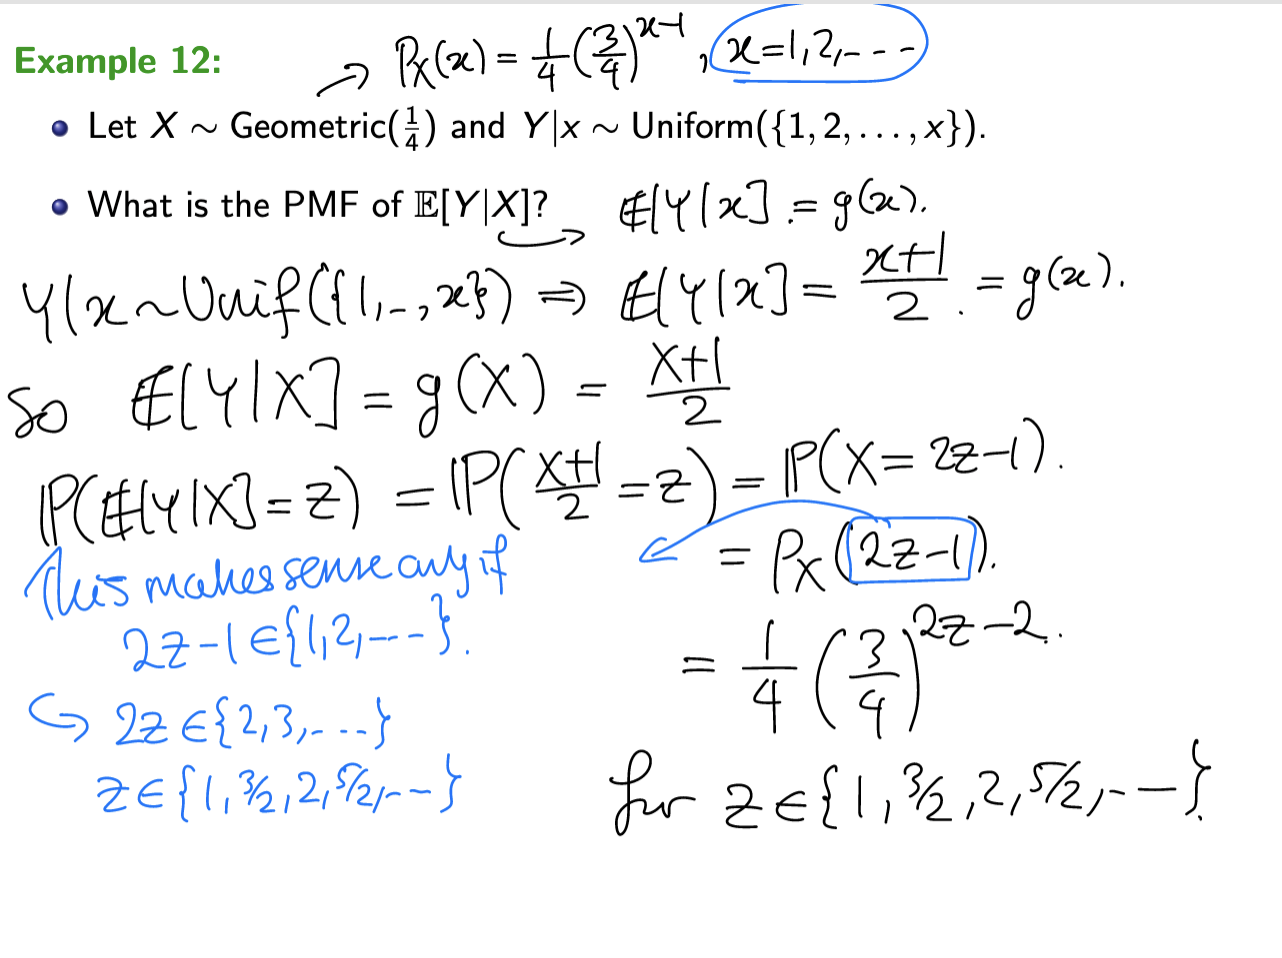 Example 12:
→ P_X(x) = 1/4 (3/4)^{x-1}, x=1,2,---
• Let X ∼ Geometric(1/4) and Y|x ∼ Uniform({1, 2, . . . , x}).
• What is the PMF of 𝔼[Y|X]? → 𝔼[Y|x] = g(x).
Y|x ~ Unif({1,-,x}) ⇒ 𝔼[Y|x] = x+1/2 = g(x).
So 𝔼[Y|X] = g(X) = X+1/2
ℙ(𝔼[Y|X]=z) = ℙ(X+1/2 = z) = ℙ(X = 2z-1).
= P_X(2z-1).
This makes sense only if
2z-1 ∈ {1,2,---}.
↪ 2z ∈ {2,3,----}
z ∈ {1, 3/2, 2, 5/2, --}
= 1/4 (3/4)^{2z-2}.
for z ∈ {1, 3/2, 2, 5/2, --}.